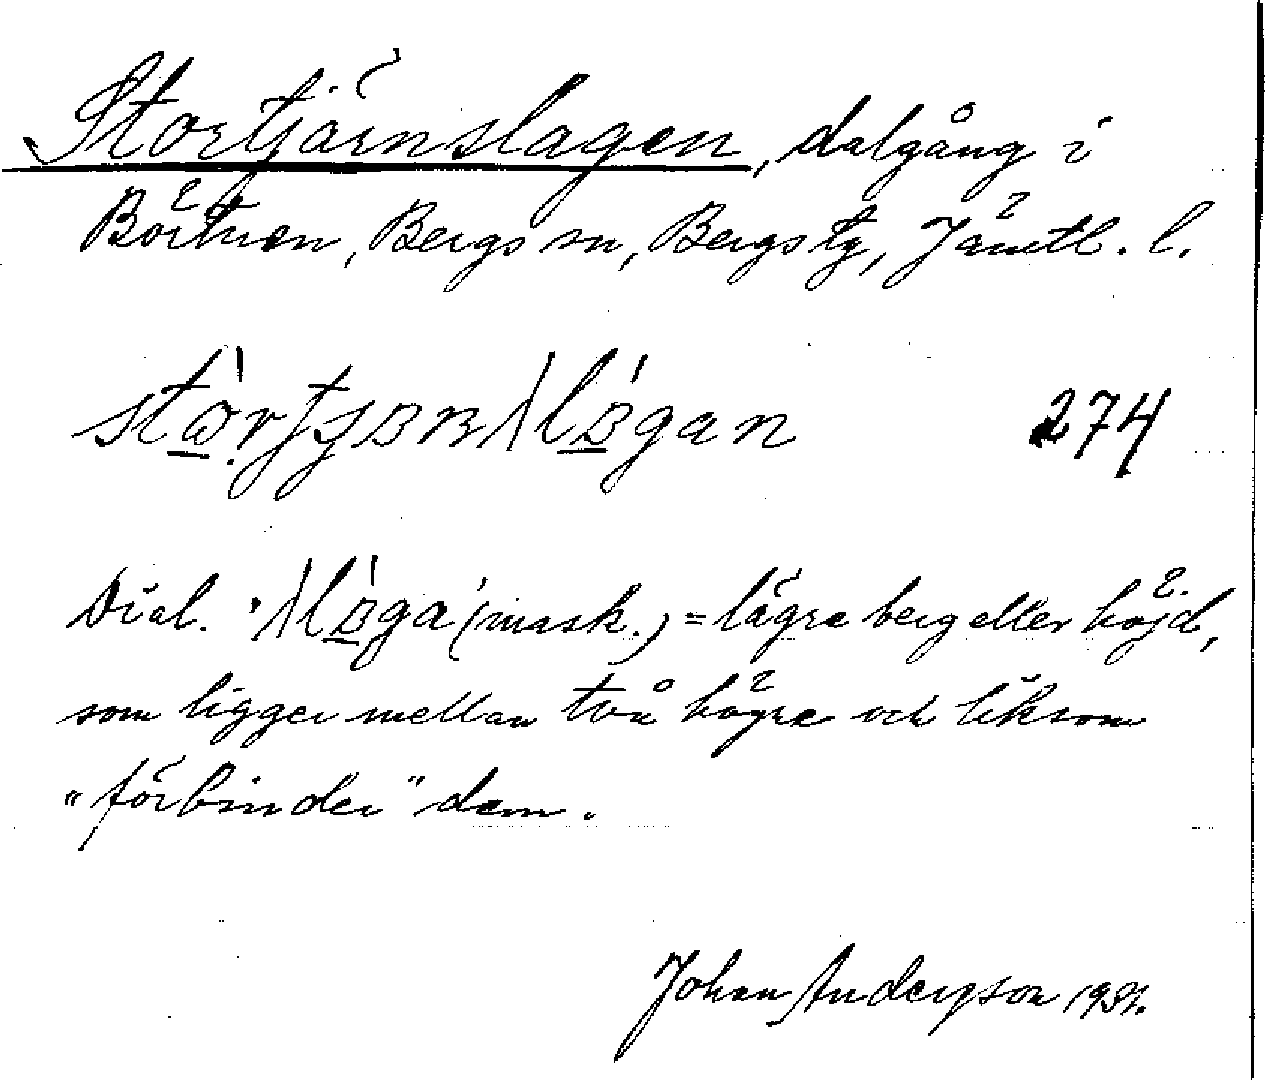 Stortjärnslagen, dalgång i
Börtnen, Bergs sn, Bergs tg, Jämtl. l.
274
Dial. (mask.) = lägre berg eller höjd,
som ligger mellan två högre och liksom
"förbinder" dem.
Johan Anderson